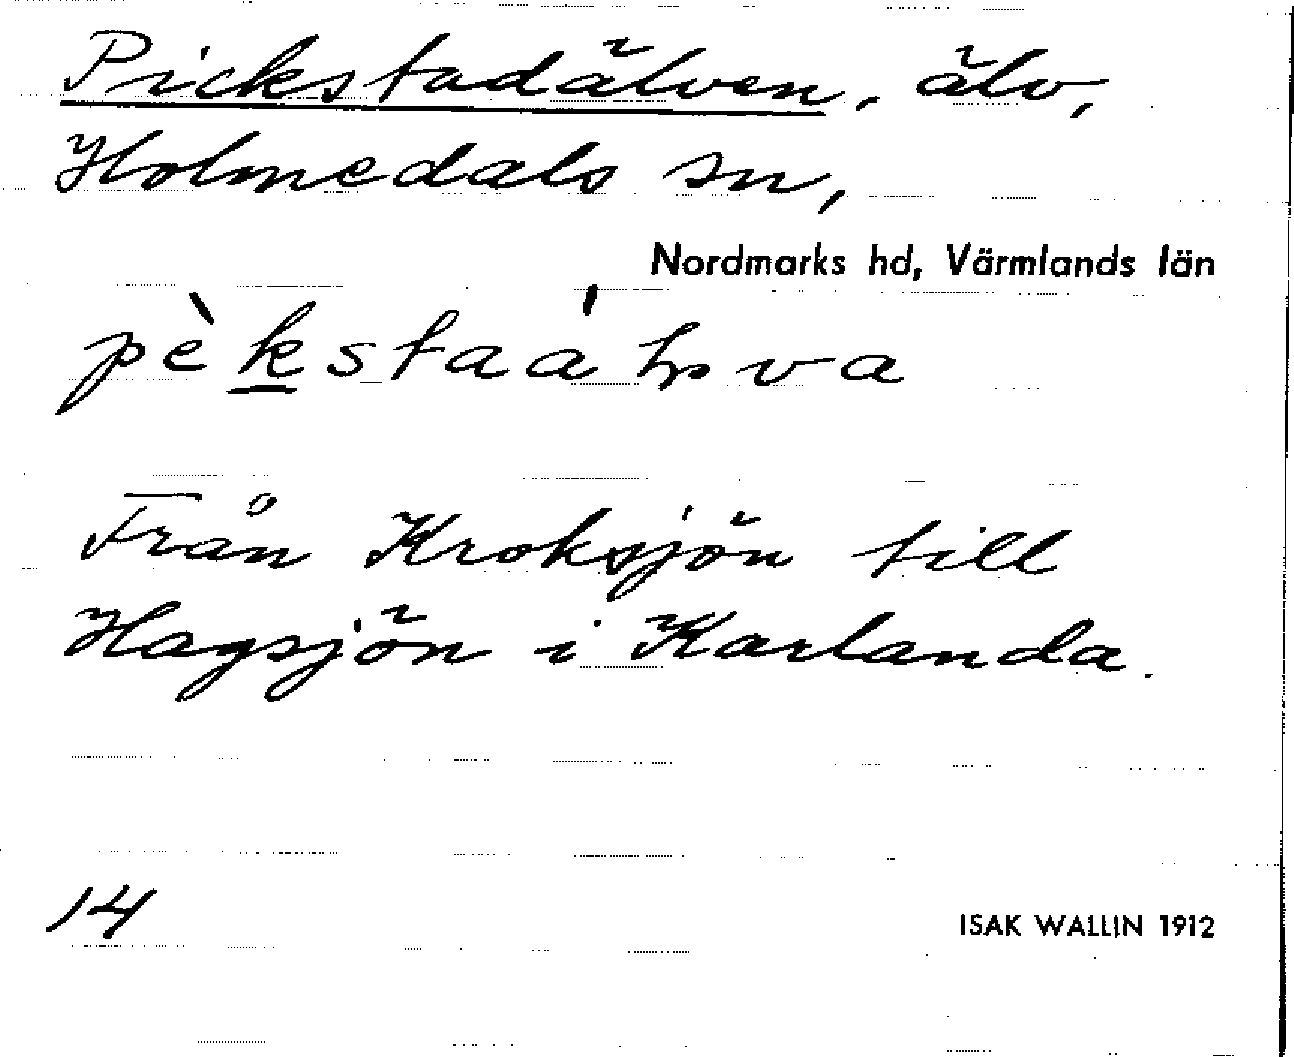 Pickstadälven, älv,
Holmedals sn,
Nordmarks hd, Värmlands län
Från Kroksjön till
Hagsjön i Karlanda.
14
ISAK WALLIN 1912